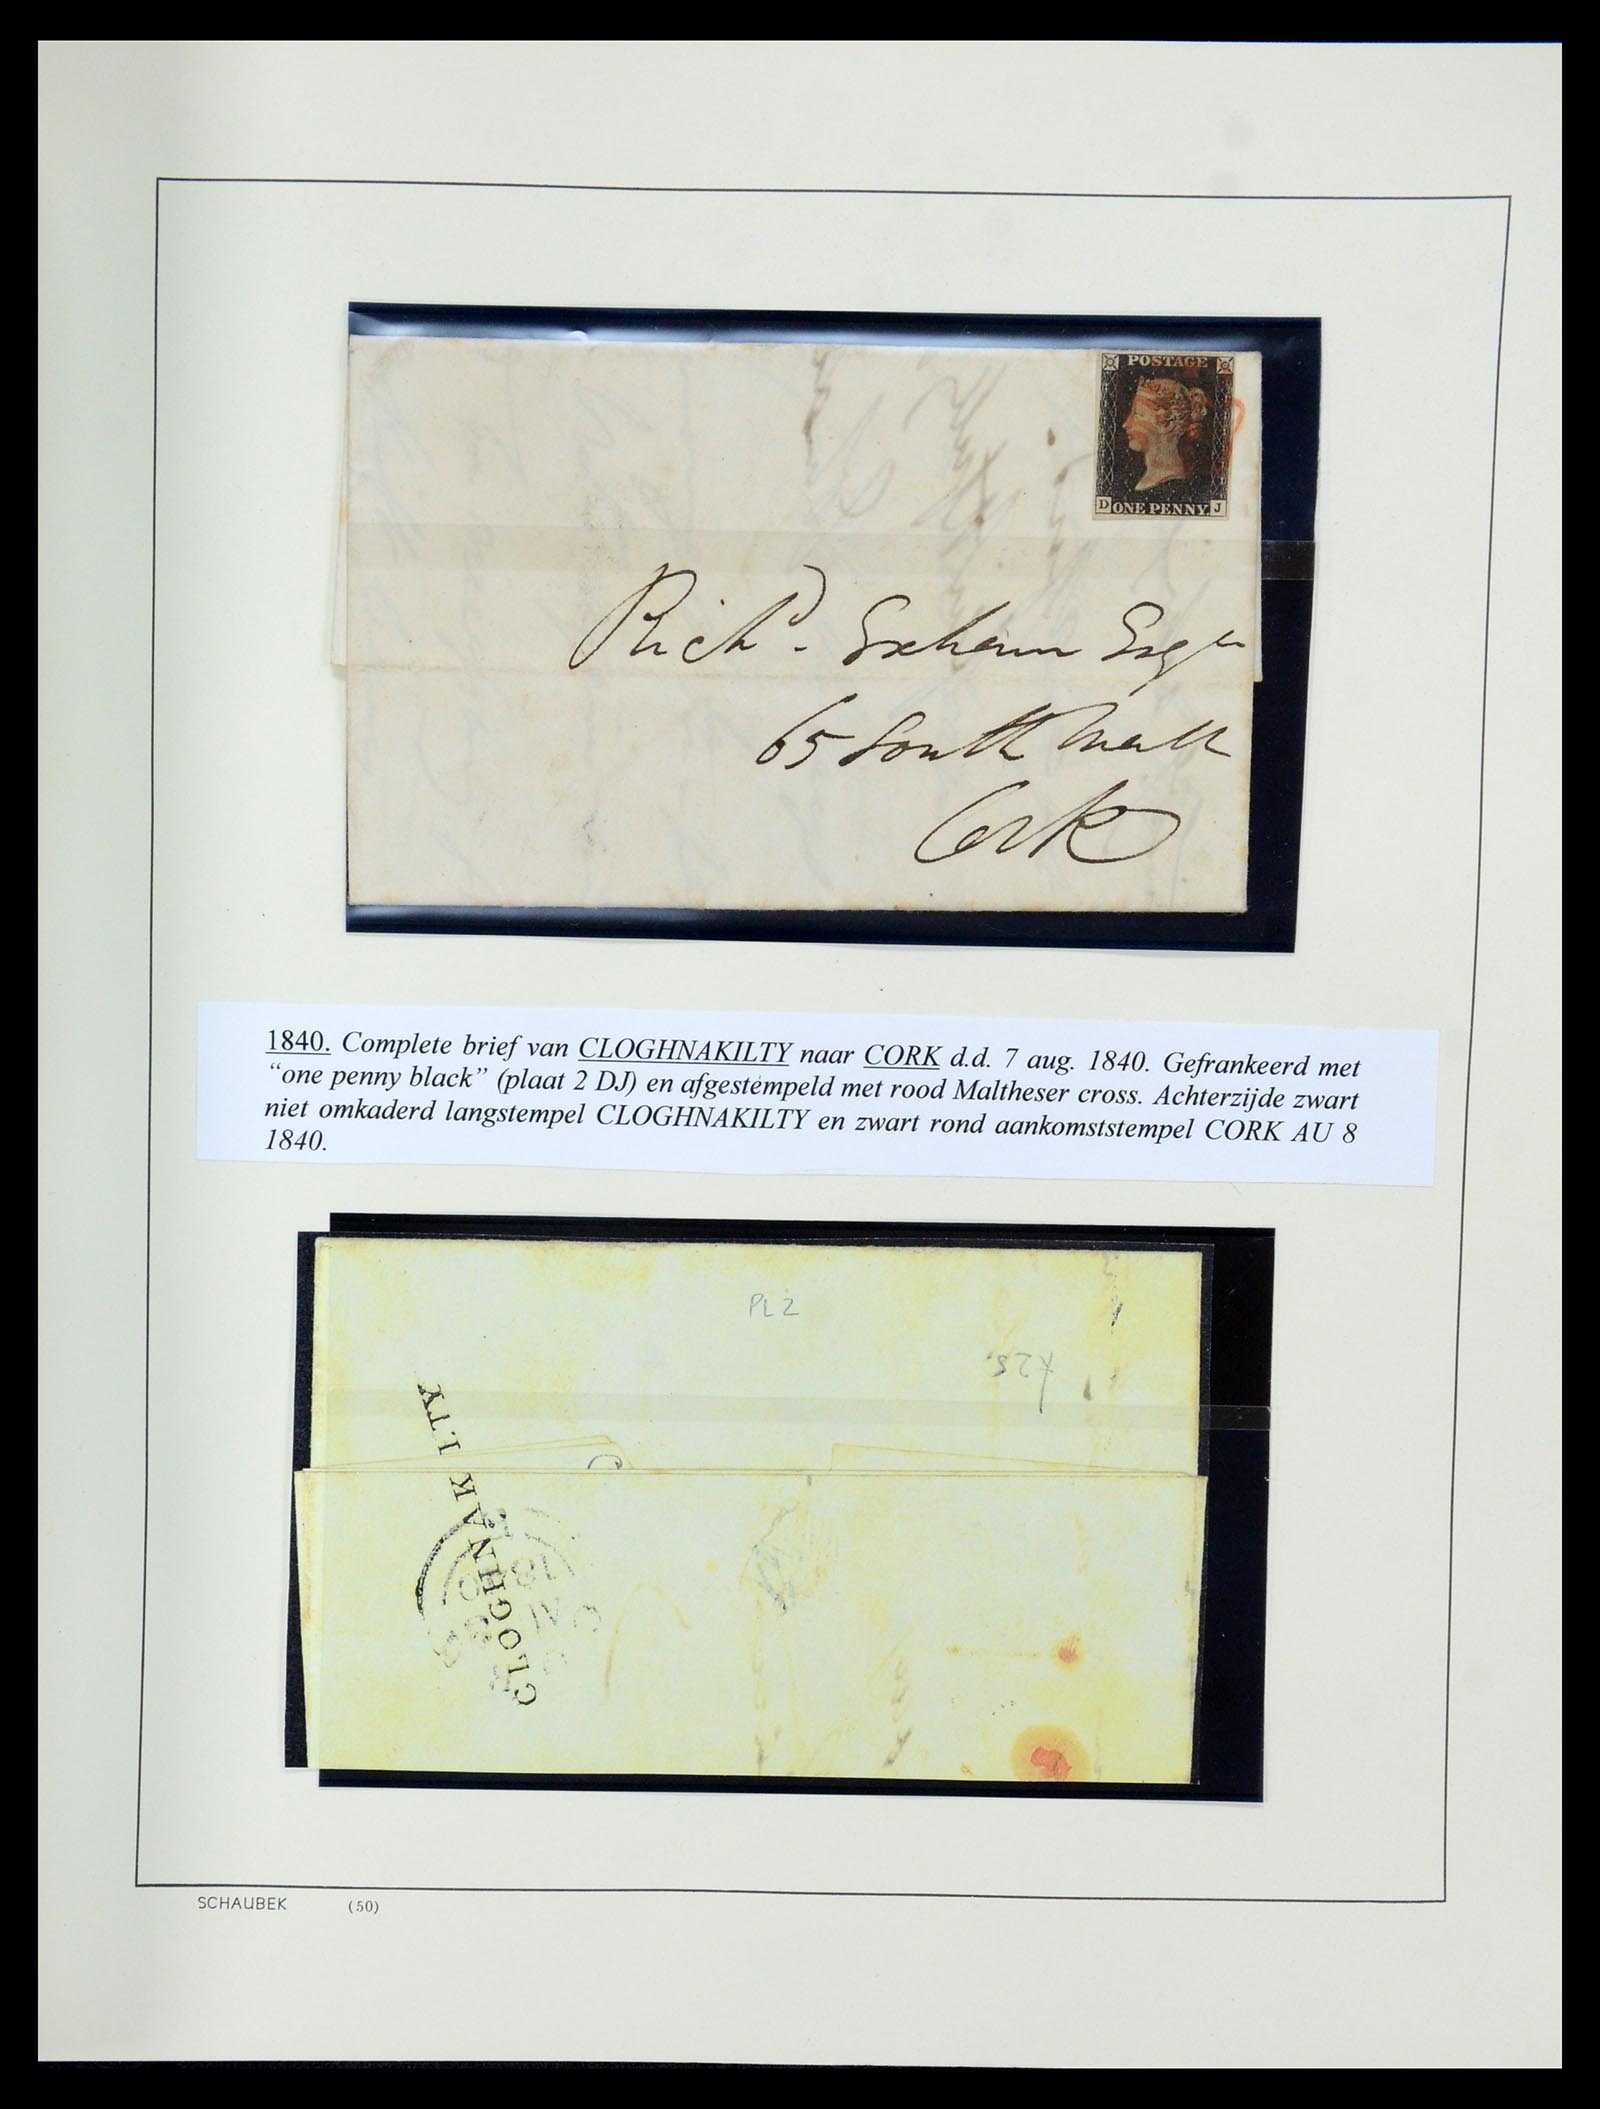 POSTAGE
D ONE PENNY. J
Richd. Graham Esqre
65 South Mall
Cork
1840. Complete brief van CLOGHNAKILTY naar CORK d.d. 7 aug. 1840. Gefrankeerd met
“one penny black” (plaat 2 DJ) en afgestempeld met rood Maltheser cross. Achterzijde zwart
niet omkaderd langstempel CLOGHNAKILTY en zwart rond aankomststempel CORK AU 8
1840.
PL 2
CLOGHNAKILTY
SCHAUBEK (50)